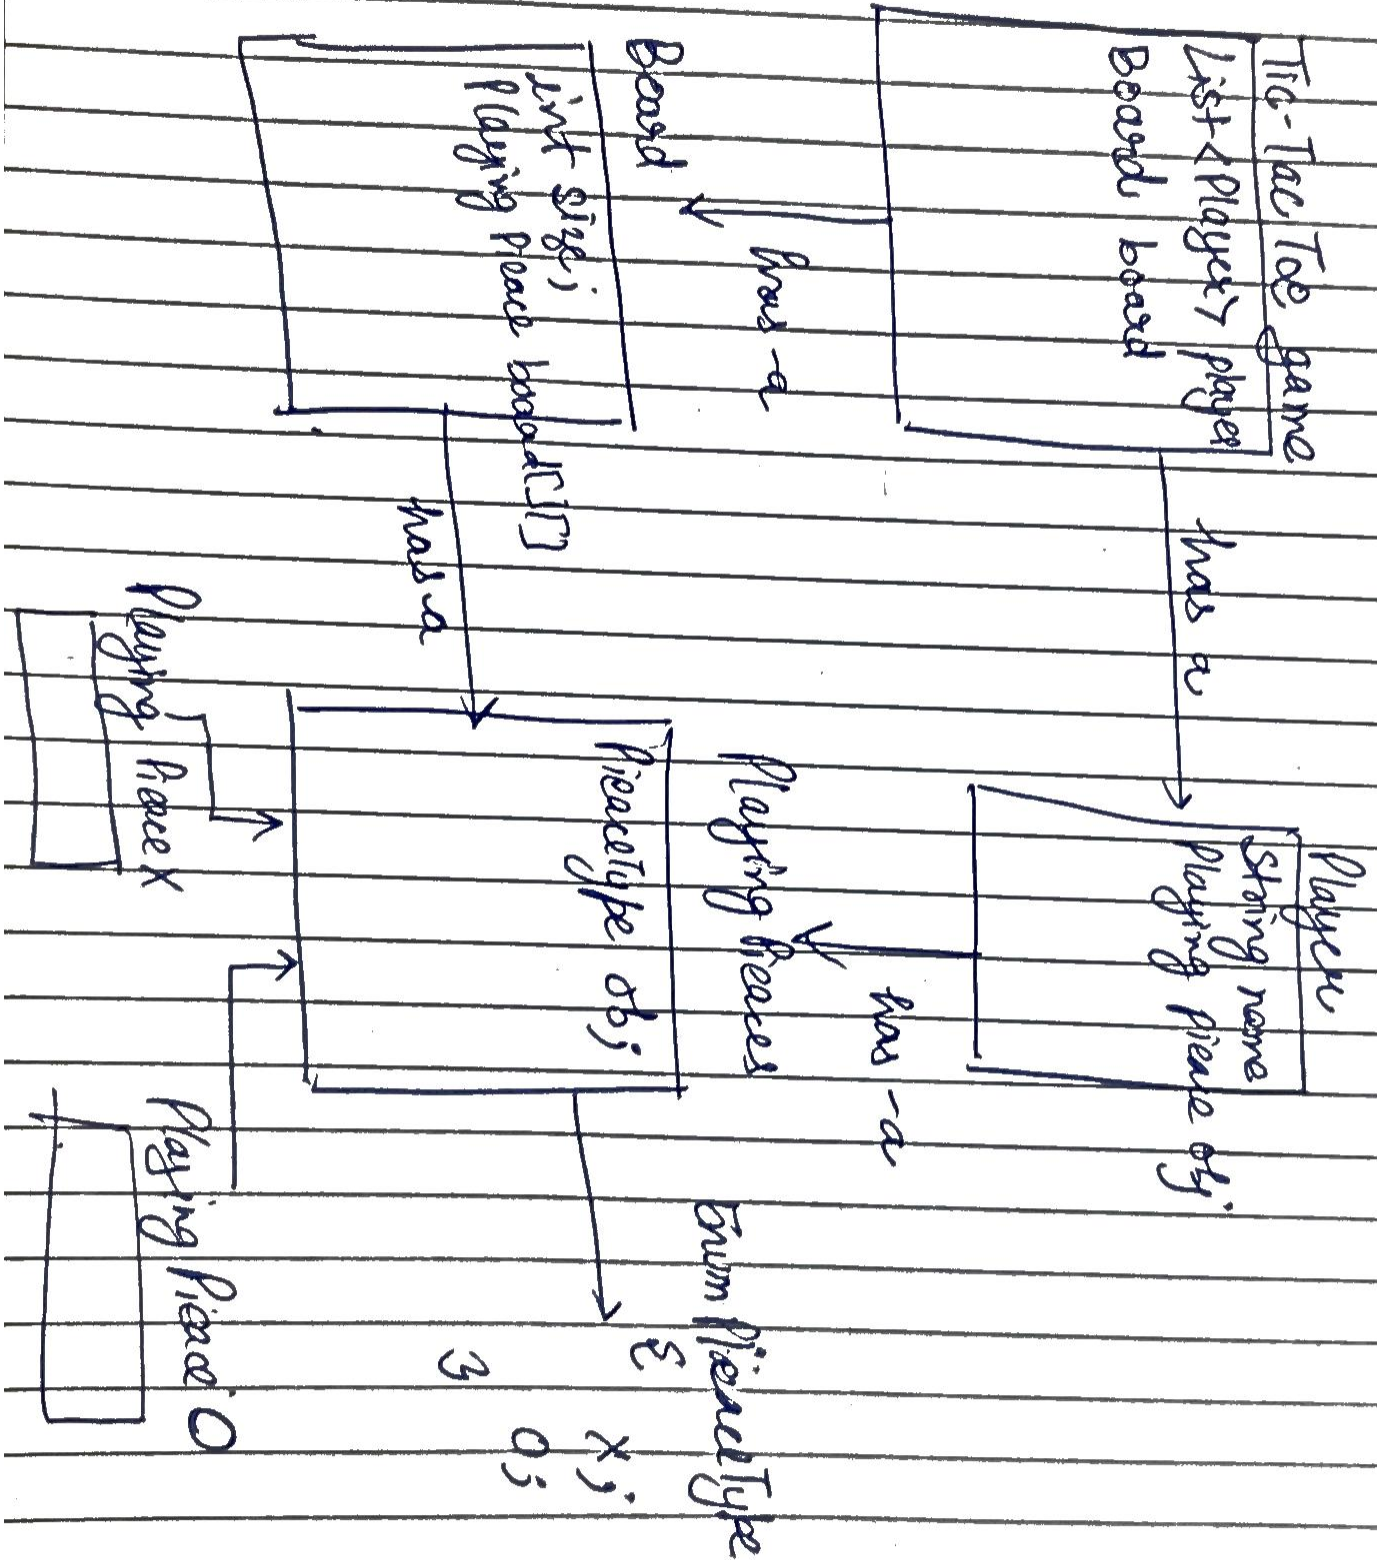 Tic-Tac Toe game
List<Player> player
Board board
has a
Player
String name
Playing Pieace obj
has-a
has-a
Board
int size;
Playing Pieace board[][]
has a
Playing Pieaces
PieaceType obj
Enum PieaceType
{
X;
O;
}
Playing Pieace X
Playing Pieace O